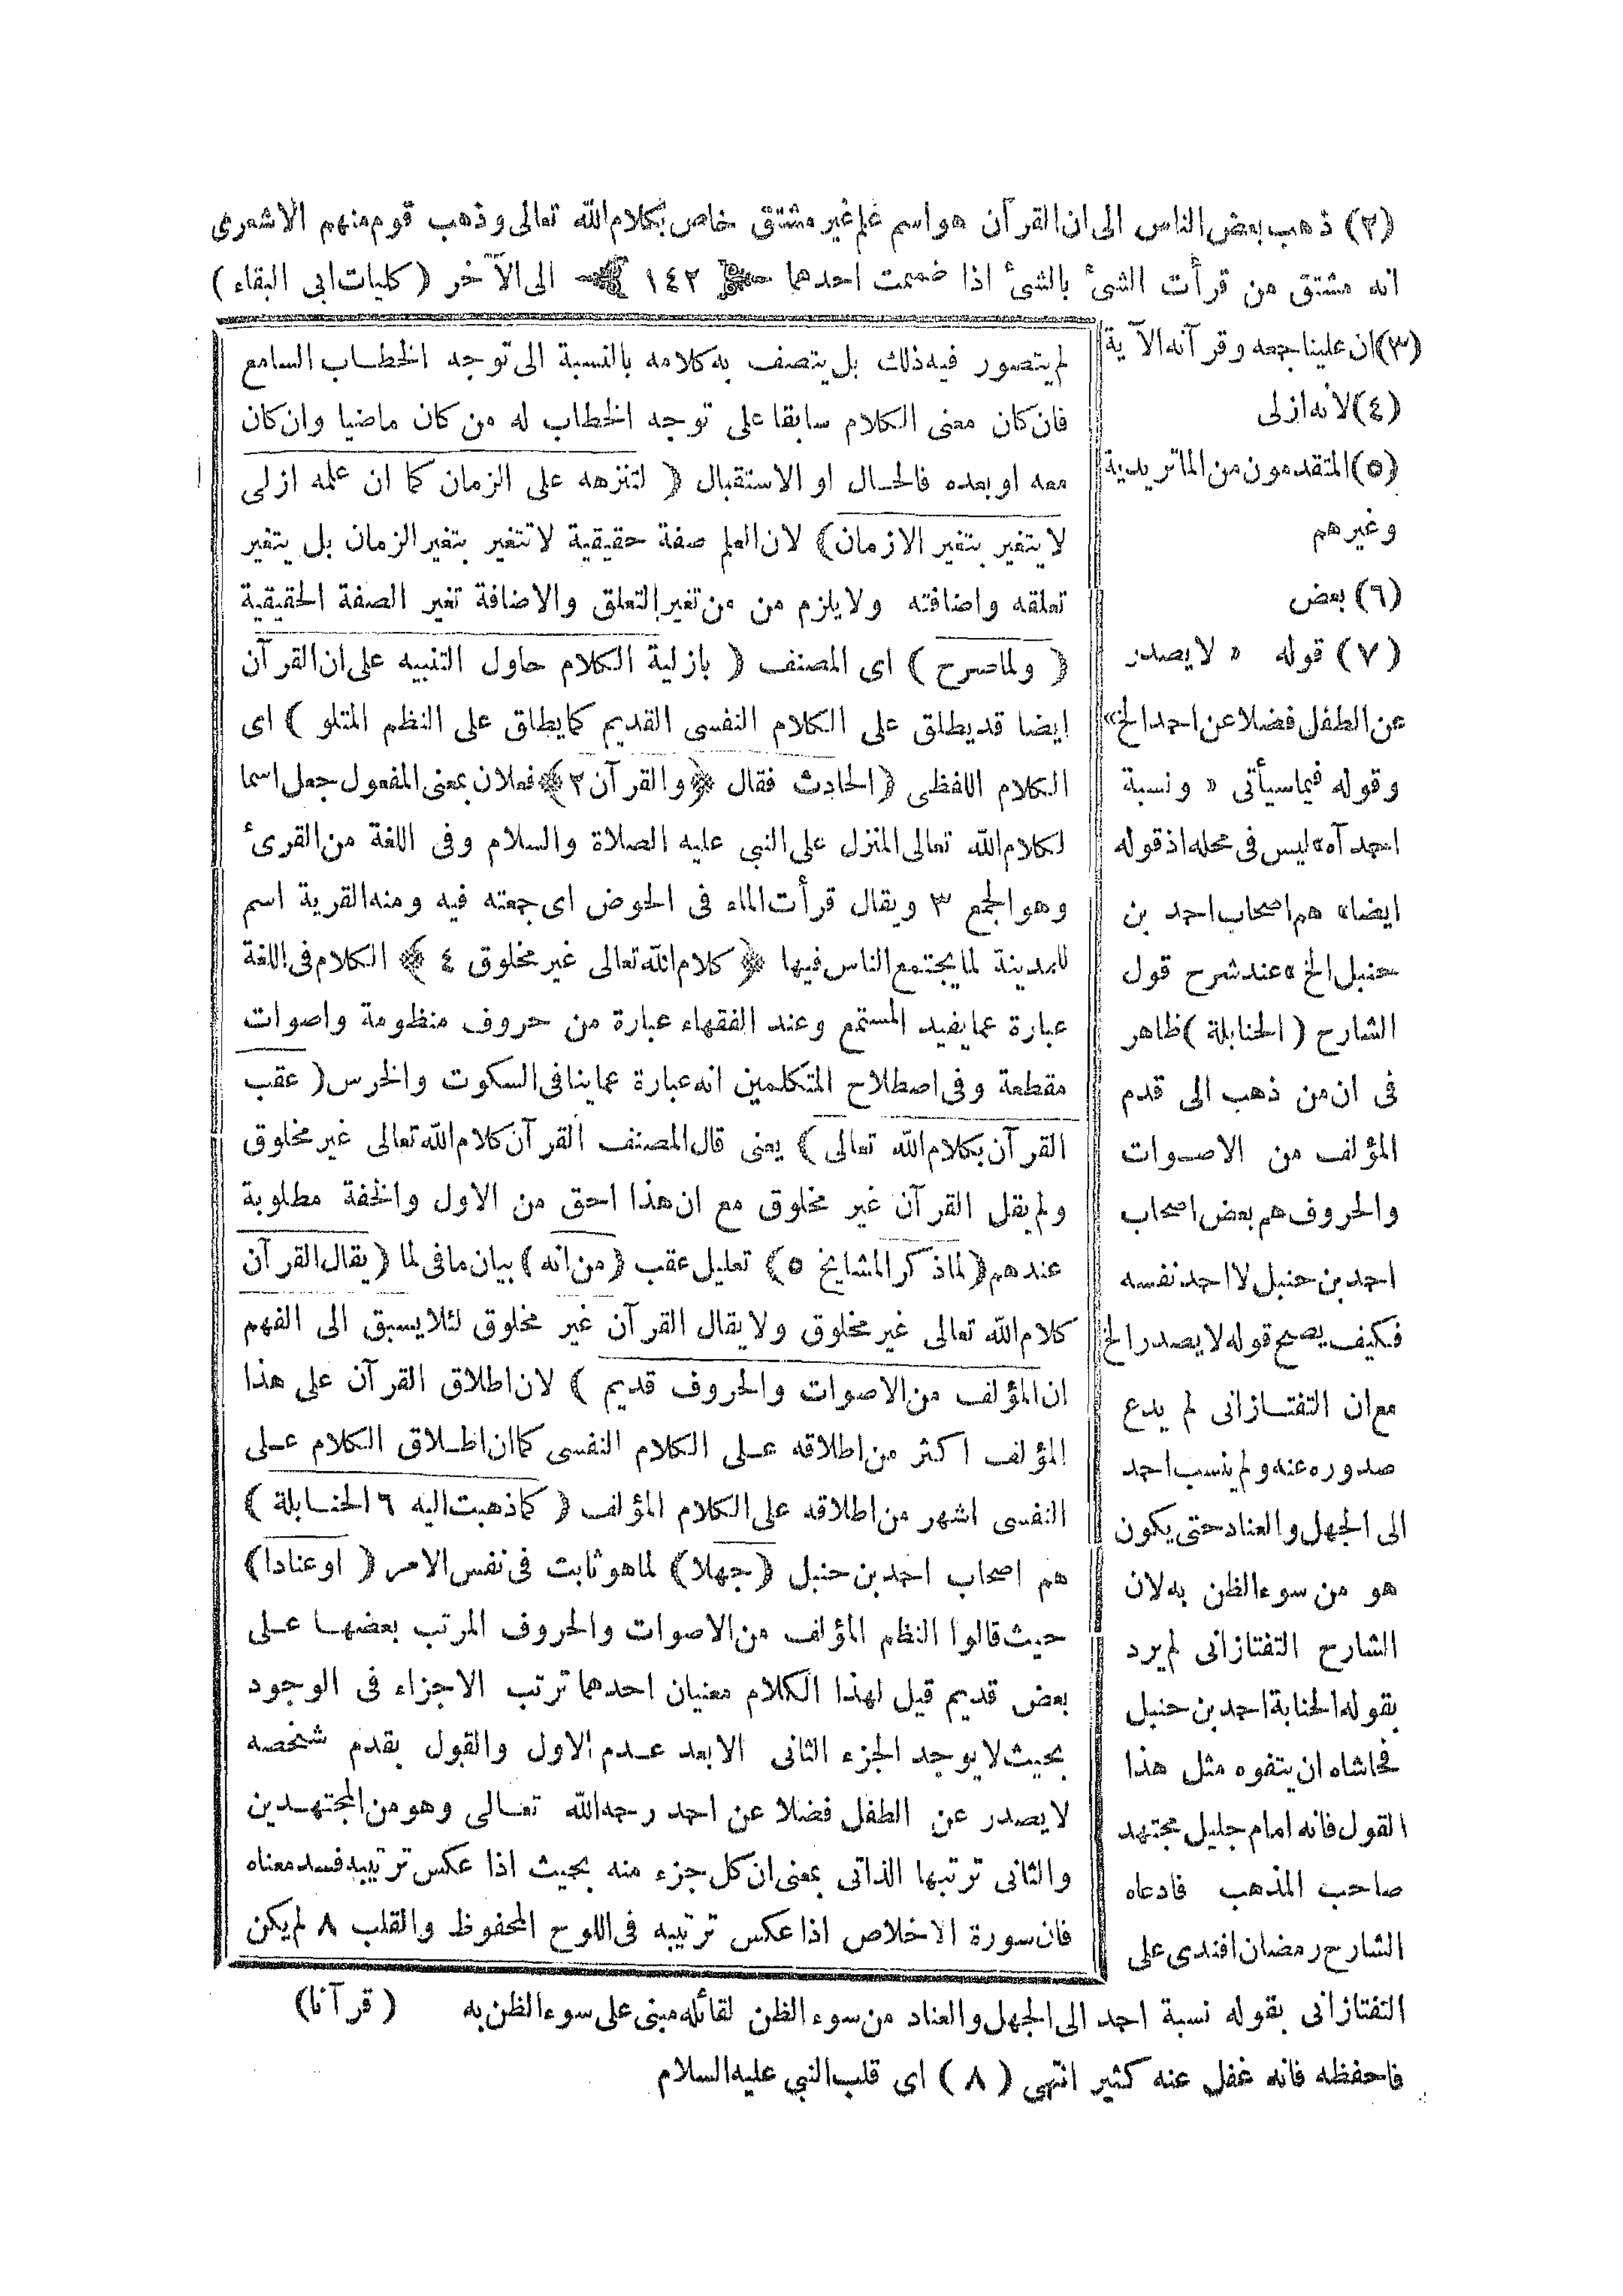 (٢) ذهب بعض الناس الى ان القرآن هو اسم علم غير مشتق خاص بكلام الله تعالى وذهب قوم منهم الاشعرى
انه مشتق من قرأت الشئ بالشئ اذا ضممت احدهما ﴿ ١٤٢ ﴾ الى الآخر ( كليات ابى البقاء )
لم يتصور فيه ذلك بل يتصف به كلامه بالنسبة الى توجه الخطاب السامع
فان كان معنى الكلام سابقا على توجه الخطاب له من كان ماضيا وان كان
معه او بعده فالحال او الاستقبال ( لتنزهه على الزمان كما ان علمه ازلى
لا يتغير بتغير الازمان ) لان العلم صفة حقيقية لا تتغير بتغير الزمان بل يتغير
تعلقه واضافته ولا يلزم من من تغير التعلق والاضافة تغير الصفة الحقيقية
( ولما صرح ) اى المصنف ( بازلية الكلام حاول التنبيه على ان القرآن
ايضا قد يطلق على الكلام النفسى القديم كما يطلق على النظم المتلو ) اى
الكلام اللفظى ( الحادث فقال ﴿ والقرآن ٢ ﴾ فعلان بمعنى المفعول جعل اسما
لكلام الله تعالى المنزل على النبي عليه الصلاة والسلام وفى اللغة من القرئ
وهو الجمع ٣ ويقال قرأت الماء فى الحوض اى جمعته فيه ومنه القرية اسم
للمدينة لما يجتمع الناس فيها ﴿ كلام الله تعالى غير مخلوق ٤ ﴾ الكلام فى اللغة
عبارة عما يفيد المستمع وعند الفقهاء عبارة من حروف منظومة واصوات
مقطعة وفى اصطلاح المتكلمين انه عبارة عما ينافى السكوت والخرس ( عقب
القرآن بكلام الله تعالى ) يعنى قال المصنف القرآن كلام الله تعالى غير مخلوق
ولم يقل القرآن غير مخلوق مع ان هذا احق من الاول والخفة مطلوبة
عندهم ( لما ذكر المشايخ ٥ ) تعليل عقب ( من انه ) بيان ما فى لما ( يقال القرآن
كلام الله تعالى غير مخلوق ولا يقال القرآن غير مخلوق لئلا يسبق الى الفهم
ان المؤلف من الاصوات والحروف قديم ) لان اطلاق القرآن على هذا
المؤلف اكثر من اطلاقه على الكلام النفسى كما ان اطلاق الكلام على
النفسى اشهر من اطلاقه على الكلام المؤلف ( كما ذهبت اليه ٦ الحنابلة )
هم اصحاب احمد بن حنبل ( جهلا ) لما هو ثابت فى نفس الامر ( او عنادا )
حيث قالوا النظم المؤلف من الاصوات والحروف المرتب بعضها على
بعض قديم قيل لهذا الكلام معنيان احدهما ترتب الاجزاء فى الوجود
بحيث لا يوجد الجزء الثانى الا بعد عدم الاول والقول بقدم شخصه
لا يصدر عن الطفل فضلا عن احمد رحمه الله تعالى وهو من المجتهدين
والثانى ترتبها الذاتى بمعنى ان كل جزء منه بحيث اذا عكس ترتيبه فسد معناه
فان سورة الاخلاص اذا عكس ترتيبه فى اللوح المحفوظ والقلب ٨ لم يكن
(٣) ان علينا جمعه وقرآنه الآية
(٤) لانه ازلى
(٥) المتقدمون من الماتريدية
وغيرهم
(٦) بعض
(٧) قوله « لا يصدر
عن الطفل فضلا عن احمد الخ »
وقوله فيما سيأتى « ونسبة
احمد آه » ليس فى محله اذ قوله
ايضا « هم اصحاب احمد بن
حنبل الخ » عند شرح قول
الشارح ( الحنابلة ) ظاهر
فى ان من ذهب الى قدم
المؤلف من الاصوات
والحروف هم بعض اصحاب
احمد بن حنبل لا احمد نفسه
فكيف يصح قوله لا يصدر الخ
مع ان التفتازانى لم يدع
صدوره عنه ولم ينسب احمد
الى الجهل والعناد حتى يكون
هو من سوء الظن به لان
الشارح التفتازانى لم يرد
بقوله الحنابة احمد بن حنبل
فحاشاه ان يتفوه مثل هذا
القول فانه امام جليل مجتهد
صاحب المذهب فادعاه
الشارح رمضان افندى على
التفتازانى بقوله نسبة احمد الى الجهل والعناد من سوء الظن لقائله مبنى على سوء الظن به ( قرآنا )
فاحفظه فانه غفل عنه كثير انتهى ( ٨ ) اى قلب النبي عليه السلام